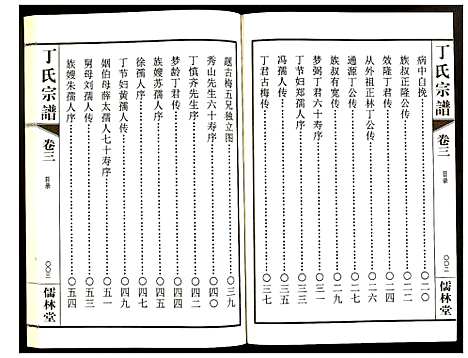 丁氏宗譜
卷三
目录
〇〇二
儒林堂
病中自挽……〇二〇
族叔正隆公传……〇二一
从外祖正林丁公传……〇二二
效隆丁君传……〇二四
通源丁公传……〇二六
族叔有宽传……〇二九
梦弼丁君六十寿序……〇三一
丁节妇郑孺人传……〇三二
冯孺人传……〇三五
丁君古梅传……〇三七
题古梅五兄独立图……〇三九
秀山先生六十寿序……〇四〇
丁慎齐先生序……〇四二
梦龄丁君传……〇四四
族嫂苏孺人序……〇四六
徐孺人序……〇四七
丁节妇黄孺人传……〇四九
姻伯母薛太孺人七十寿序……〇五一
舅母刘孺人传……〇五三
族嫂朱孺人序……〇五四
丁氏宗譜
卷三
目录
〇〇三
儒林堂